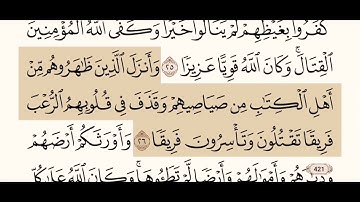 كَفَرُوا۟ بِغَيْظِهِمْ لَمْ يَنَالُوا۟ خَيْرًۭا ۚ وَكَفَى ٱللَّهُ ٱلْمُؤْمِنِينَ
ٱلْقِتَالَ ۚ وَكَانَ ٱللَّهُ قَوِيًّا عَزِيزًۭا ٢٥ وَأَنزَلَ ٱلَّذِينَ ظَٰهَرُوهُم مِّنْ
أَهْلِ ٱلْكِتَٰبِ مِن صَيَاصِيهِمْ وَقَذَفَ فِى قُلُوبِهِمُ ٱلرُّعْبَ
فَرِيقًۭا تَقْتُلُونَ وَتَأْسِرُونَ فَرِيقًۭا ٢٦ وَأَوْرَثَكُمْ أَرْضَهُمْ
421
وَدِيَٰرَهُمْ وَأَمْوَٰلَهُمْ وَأَرْضًۭا لَّمْ تَطَـُٔوهَا ۚ وَكَانَ ٱللَّهُ عَلَىٰ كُلِّ